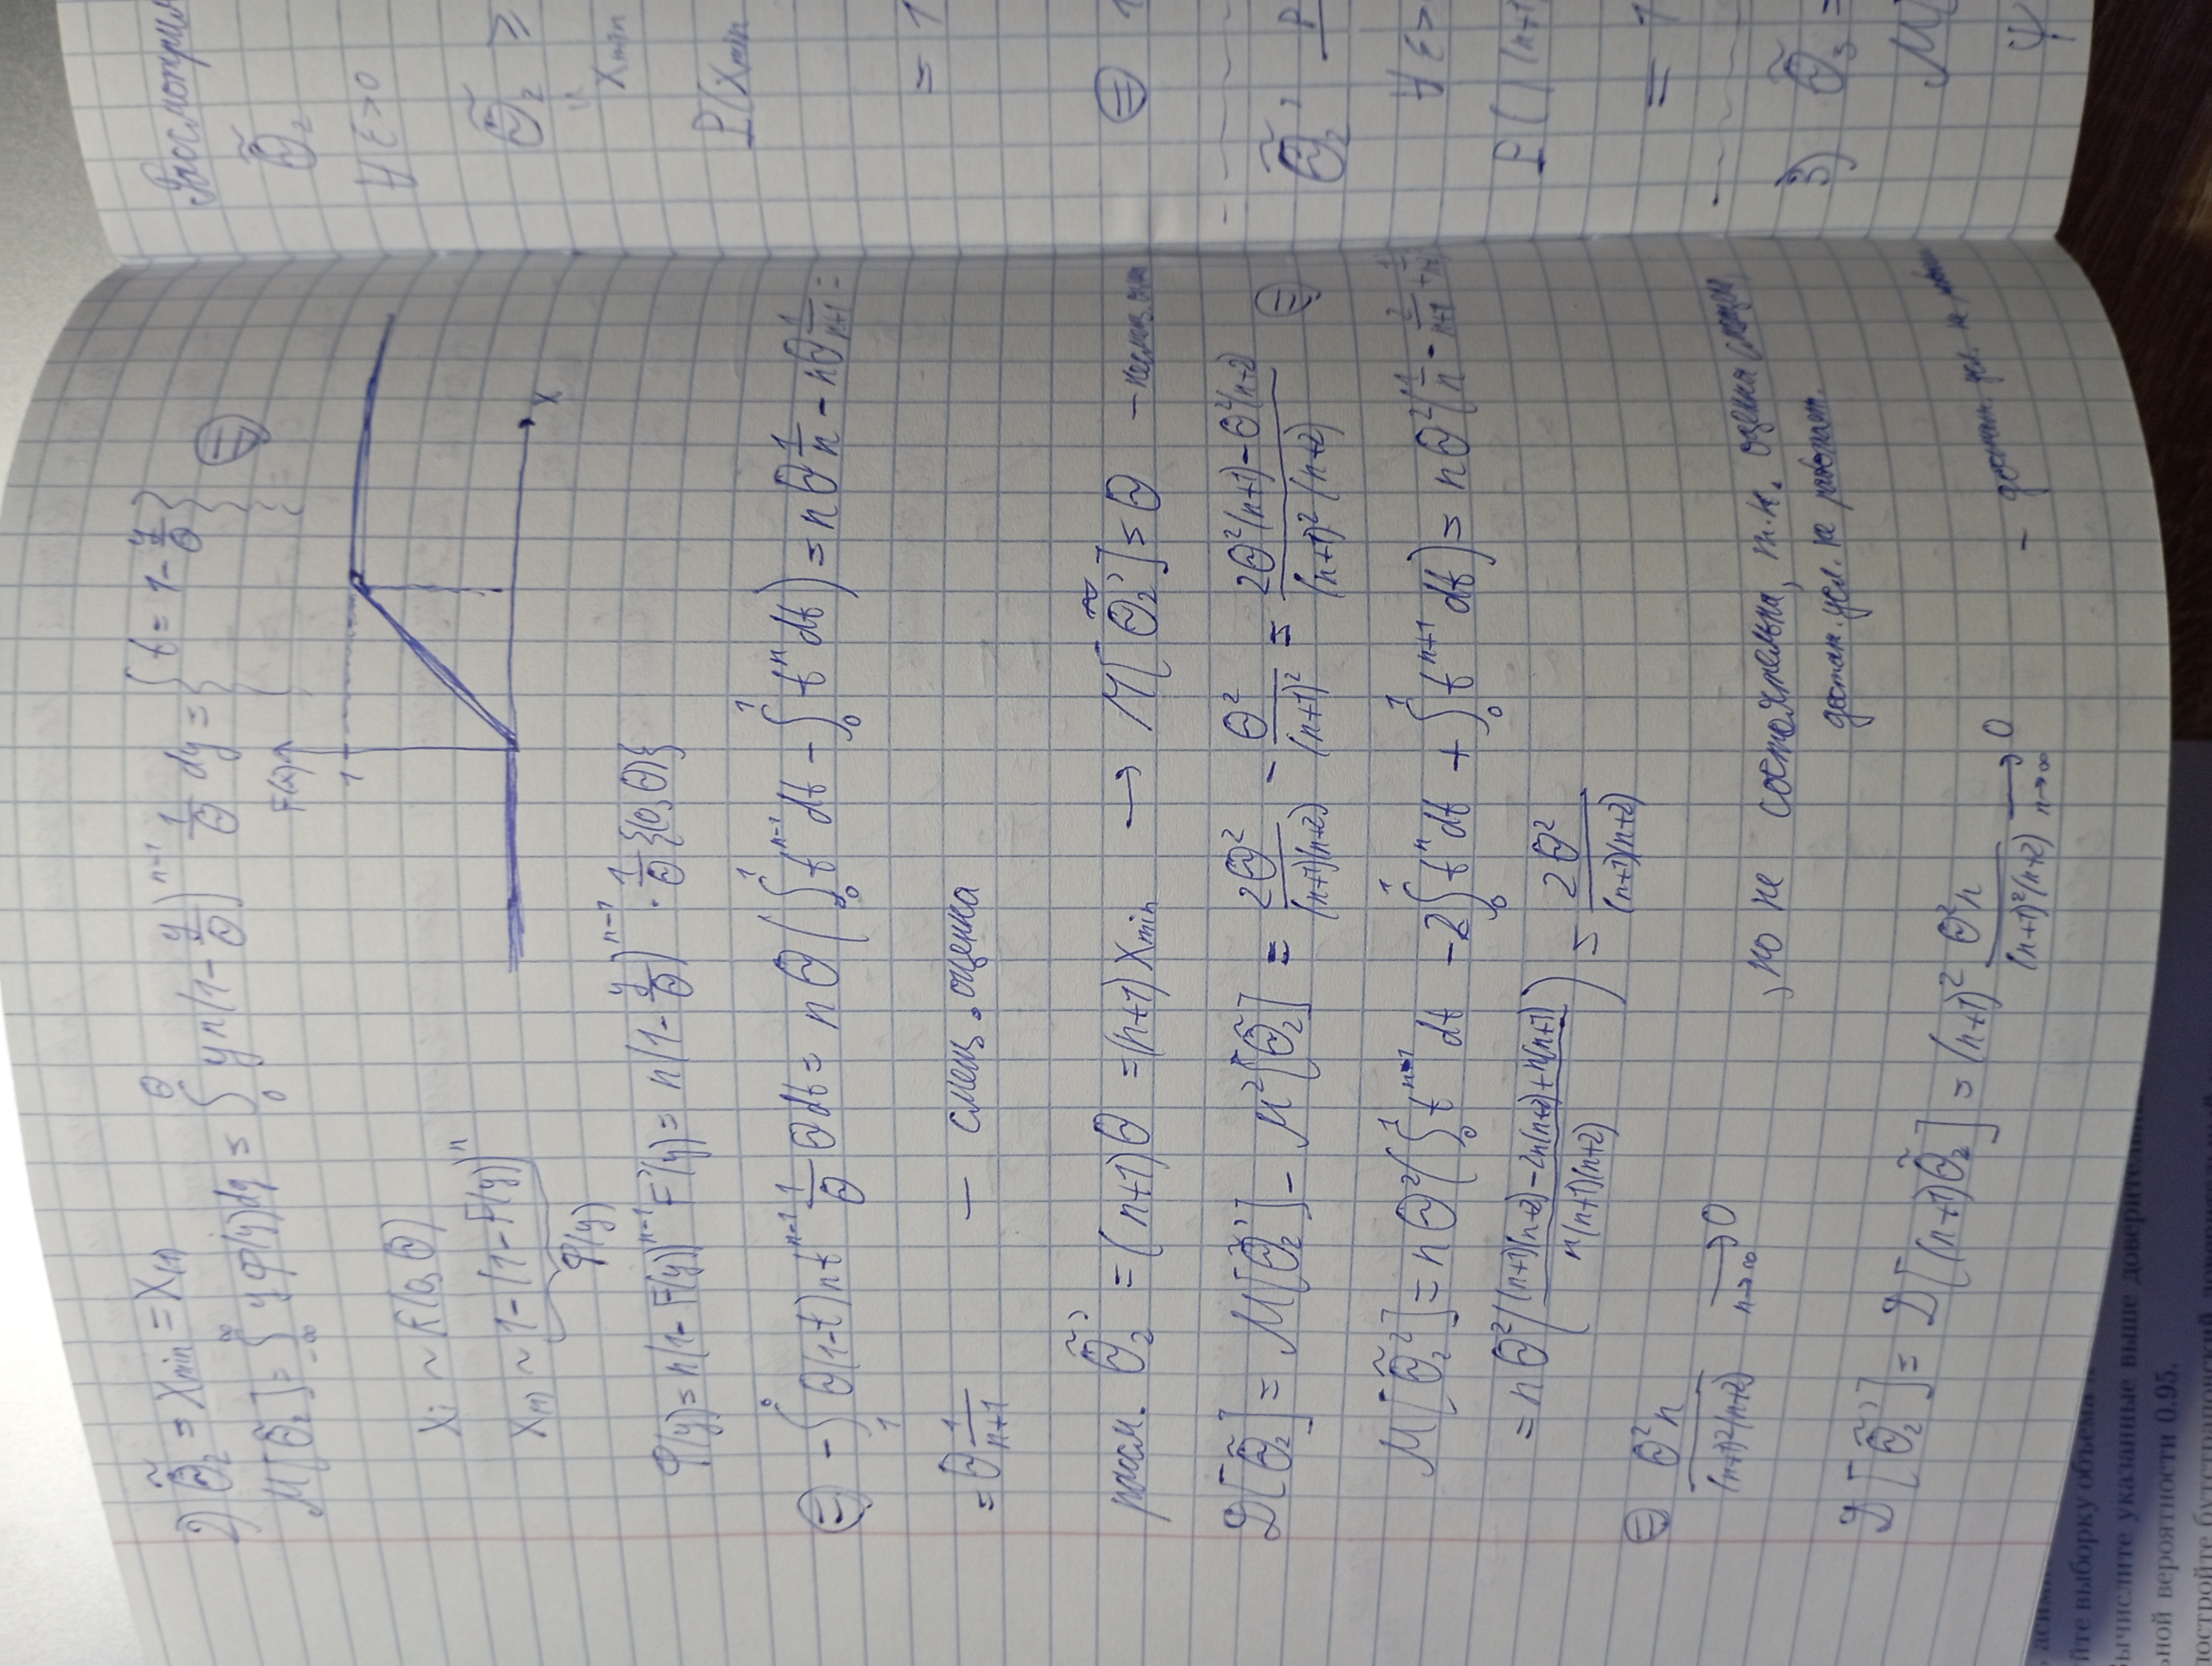 2) Θ̃₂ = Xmin = X(1)
M[Θ̃₂] = ∫_{-∞}^{∞} y φ(y)dy = ∫_0^Θ y n(1 - y/Θ)^{n-1} 1/Θ dy = { t = 1 - y/Θ } ⊜
F(x)
1
x
Xi ~ R(0, Θ)
X(1) ~ 1 - (1 - F(y))^n
Φ(y)
φ(y) = n(1 - F(y))^{n-1} F'(y) = n(1 - y/Θ)^{n-1} · 1/Θ {(0, Θ)}
⊜ -∫_1^0 Θ(1-t) n t^{n-1} 1/Θ Θ dt = nΘ(∫_0^1 t^{n-1} dt - ∫_0^1 t^n dt) = nΘ 1/n - nΘ 1/(n+1) =
= Θ 1/(n+1) — смещ. оценка
рассм. Θ̃₂' = (n+1)Θ = (n+1) Xmin → M[Θ̃₂'] = Θ - несмещ.
D[Θ̃₂] = M[Θ̃₂'] - M²[Θ̃₂] = 2Θ²/((n+1)(n+2)) - Θ²/(n+1)² = (2Θ²(n+1) - Θ²(n+2))/((n+1)²(n+2)) ⊜
M[Θ̃₂²] = nΘ²(∫_0^1 t^{n-1} dt - 2∫_0^1 t^n dt + ∫_0^1 t^{n+1} dt) = nΘ²(1/n - 2/(n+1) + 1/
= nΘ²(((n+1)(n+2) - 2n(n+2) + n(n+1))/(n(n+1)(n+2))) = 2Θ²/((n+1)(n+2))
⊜ Θ²n/((n+1)²(n+2)) →_{n→∞} 0
, но не состоятельна, т.к. оценка смещен.
достат. усл. не работает.
D[Θ̃₂'] = D[(n+1)Θ̃₂] = (n+1)² Θ²n/((n+1)²(n+2)) →_{n→∞} 0 - достат. усл. не
Рассмотрим
Θ̃₂
∀ ε>0
Θ̃₂ ≥
Xmin
P(Xmin
= 1
⊜ 1
Θ̃₂' P
∀ ε>
P(|(n+1)
= 1
3) Θ̃₃ =
M[
йте выборку объема
Вычислите указанные выше доверительн
ьной вероятности 0.95.
постройте бутстраповский доверительный